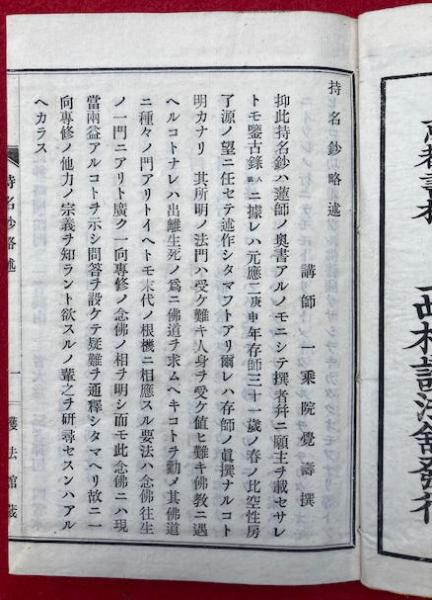 持名鈔略述
講師一乘院覺壽撰
抑此持名鈔ハ蓮師ノ奥書アルノモニシテ撰者幷ニ願主ヲ載セサレ
トモ鑒古錄ニ據レハ元應二庚申年存師三十一歲ノ春ノ比空性房
了源ノ望ニ任セテ述作シタマフトアリ爾レハ存師ノ眞撰ナルコト
明カナリ 其所明ノ法門ハ受ケ難キ人身ヲ受ケ値ヒ難キ佛敎ニ遇
ヘルコトナレハ出離生死ノ爲ニ佛道ヲ求ムヘキコトヲ勸メ其佛道
ニ種々ノ門アリトイヘトモ末代ノ根機ニ相應スル要法ハ念佛往生
ノ一門ニアリト廣ク一向專修ノ念佛ノ相ヲ明シ面モ此念佛ニハ現
當兩益アルコトヲ示シ問答ヲ設ケテ疑難ヲ通釋シタマヘリ故ニ一
向專修ノ他力ノ宗義ヲ知ラント欲スルノ輩之ヲ研尋セスンハアル
ヘカラス
持名鈔略述
一
護法館藏